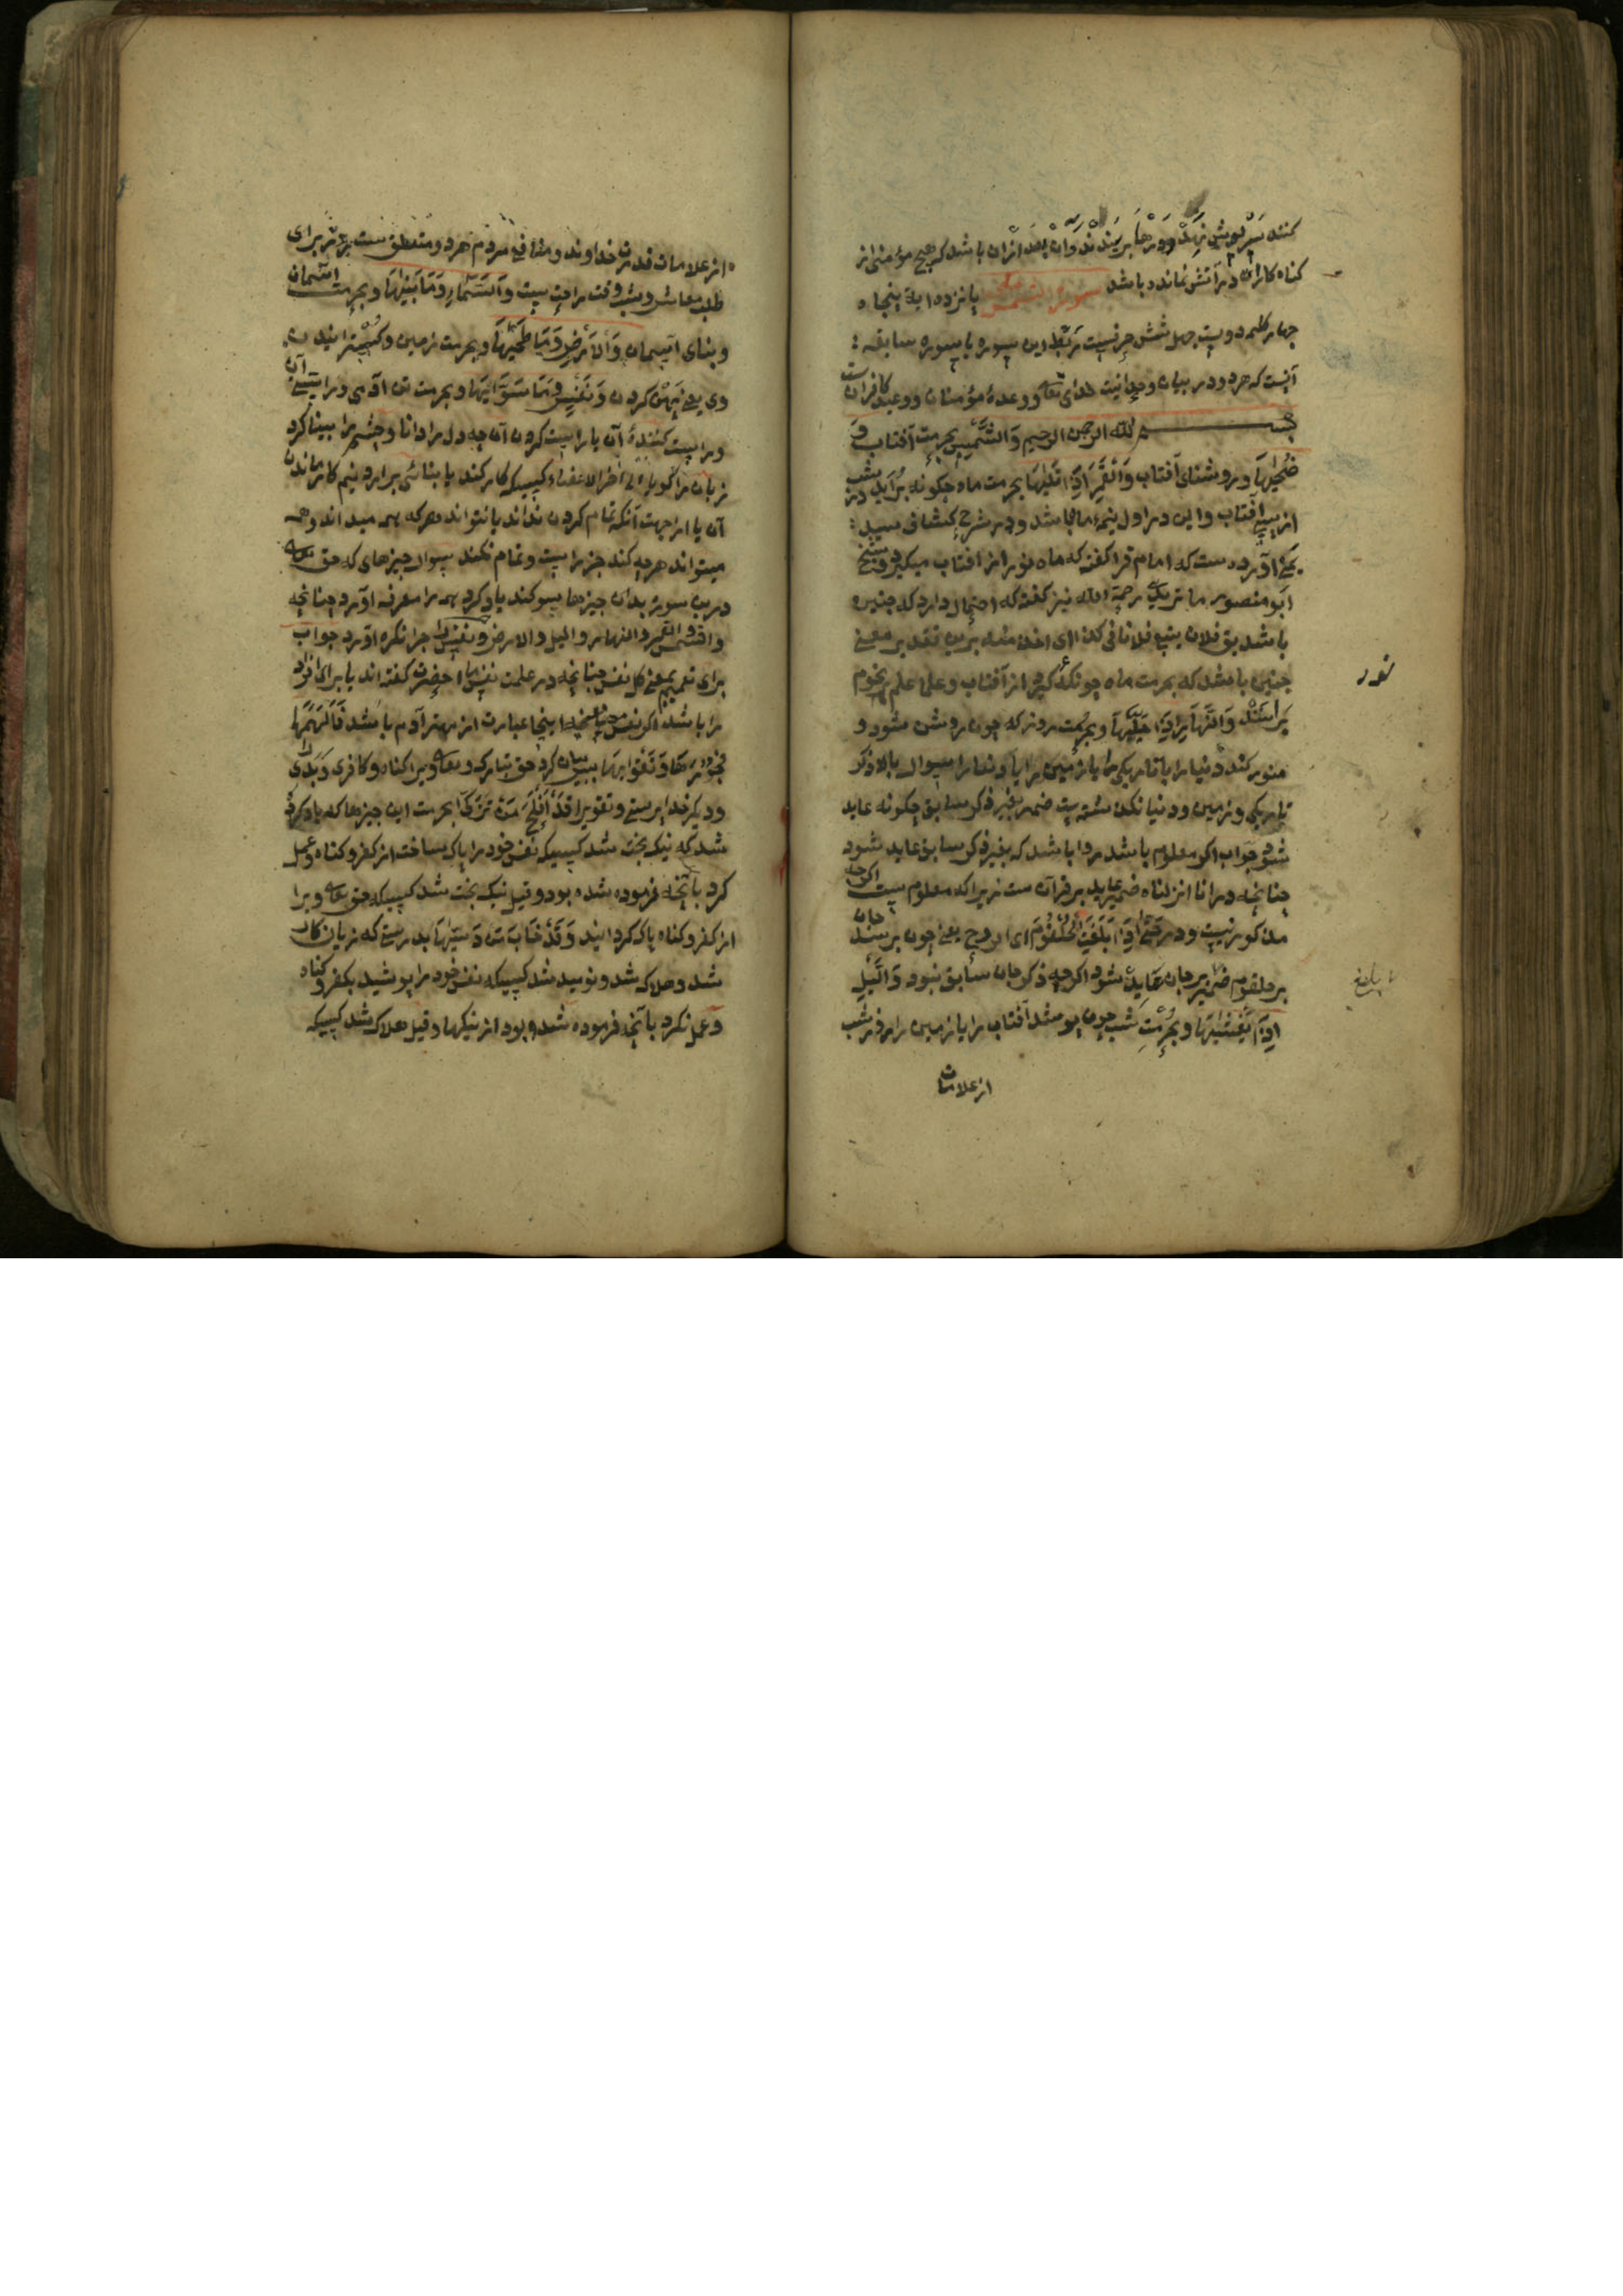 کنند سرپوشی نهند ودرها بربندند وآن بعد ازان باشد که هیچ مؤمنی از
کناه کاران در آتش نمانده باشد سورة الشمس پانزده ایة پنجاه
چهار کلمه دویست چهل شش حرفست ربط این سوره با سوره سابقه
آنست که هردو در بیان وحدانیت خدای تعالی ووعدۀ مؤمنان ووعید کافران است
بسم الله الرحمن الرحیم وَالشَّمْسِ بحرمت آفتاب وَ
ضُحٰیهَا وروشنای آفتاب وَالْقَمَرِ اِذَا تَلٰیهَا بحرمت ماه چکونه برآید بشب
از پس آفتاب واین در اول نیمۀ ماه باشد ودر شرح کشاف سید
یمنی آورده ست که امام فرا کفته که ماه نور از افتاب میکیرد وشیخ
ابو منصور ماتریدی رحمة الله نیز کفته که احتمال دارد که چنین
باشد یق فلان یتبع فلانا فی کذا ای اخذ منه برین تقدیر معنی
چنین باشد که بحرمت ماه چونکه کیرد از آفتاب وعلما علم نجوم
نور
برانند وَالنَّهَارِ اِذَا جَلّٰیهَا وبحرمت روز که چون روشن شود و
منور کند دنیا را یا تاریکی را یا زمین را یا دنیا را سوال بالا ذکر
تاریکی وزمین ودنیا نکذشته ست ضمیر بغیر ذکر سابق چکونه عاید
شود جواب اکر معلوم باشد روا باشد که بغیر ذکر سابق عاید شود
چنانچه در انا انزلناه ضمیر عاید بر قرآن ست زیرا که معلوم ست اکرچه
مذکور نیست ودر حَتّٰی اِذَا بَلَغَتِ الْحُلْقُومَ ای الروح یعنی چون برسد جان
بر حلقوم ضمیر بر جان عاید شود اکرچه ذکر جان سابق نبود وَالَّیْلِ
اِذَا یَغْشٰیهَا وبحرمت شب چون پوشد آفتاب را یا زمین را
از علامات
از علامات قدرت خداوند ومنافع مردم هردو متعلق ست روز برای
طلب معاش وشب وقت راحت ست وَالسَّمَاءِ وَمَا بَنٰیهَا وبحرمت آسمان
وبنای آسمان وَالْاَرْضِ وَمَا طَحٰیهَا وبحرمت زمین وکسترانیدن
وی یعنی پهن کردن وَنَفْسٍ وَمَا سَوّٰیهَا وبحرمت تن آدمی وراستی آن
وراست کنندۀ آن یا راست کردن آن چه دل را دانا وچشم را بینا کرد
زبان را کویا الی اخر الاعضاء کسیکه کار کند یا بنائی برارد نیم کار ماندن
آن یا از جهت آنکه تمام کردن نداند یا نتواند هرکه همه میداند وهمه
میتواند هرچه کند جز راست وتمام نکند سوال چیزهای که حق تعالی
درین سوره بدان چیزها سوکند یاد کرد همه را معرفه آورد چنانچه
والشمس والقمر والنهار واللیل والارض ونفس را چرا نکره آورد جواب
برای تعمیم یعنی کل نفس چنانچه در علمت نفس ما احضرت کفته اند یا برای افراد
را باشد اکر نفس اینجا عبارت از مهتر آدم باشد فَاَلْهَمَهَا
فُجُورَهَا وَتَقْوٰیهَا بیان کرد حق تبارک وتعالی ویرا کناه وکافری وبدی را
ودیکر خدا پرستی وتقوی را قَدْ اَفْلَحَ مَنْ زَکّٰیهَا بحرمت این چیزها که یاد کرده
شد که نیک بخت شد کسیکه نفس خود را پاک ساخت از کفر وکناه وعمل
کرد بآنچه فرموده شده بود وقیل نیک بخت شد کسیکه حق تعالی ویرا
از کفر وکناه پاک کردانید وَقَدْ خَابَ مَنْ دَسّٰیهَا بدرستی که زیان کار
شد وهلاک شد ونومید شد کسیکه نفس خود را پوشید بکفر وکناه
وعمل نکرد بآنچه فرموده شده بود از نیکیها وقیل هلاک شد کسیکه